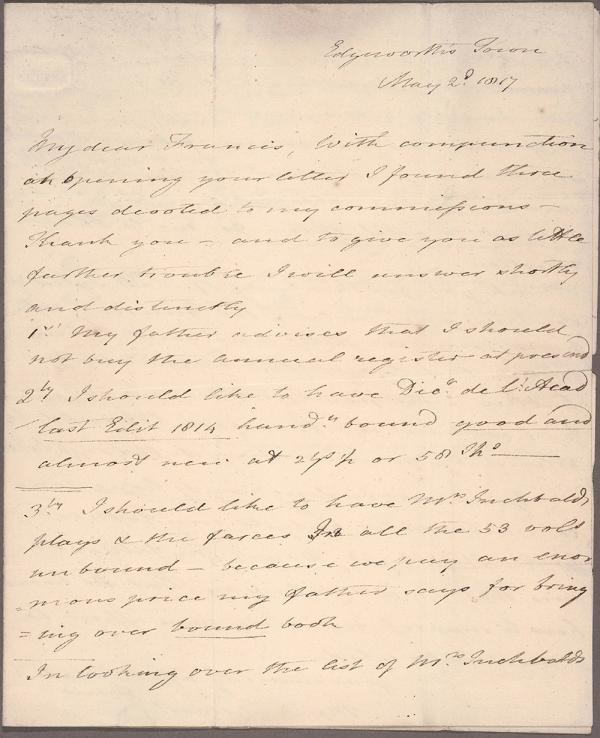 Edgeworth's Town
May 2d. 1817
My dear Francis, With compunction
on opening your letter I found three
pages devoted to my commissions –
Thank you – and to give you as little
farther trouble I will answer shortly
and distinctly
1st. My father advises that I should
not buy the annual register at present
2ly I should like to have Dicre. de l'. Acad
last Edit 1814 handly bound good and
almost new at or 58
3ly I should like to have Mrs Inchbalds
plays & the farces In all the 53 vols
unbound – because we pay an enor
=mous price my father says for bring
=ing over bound book
In looking over the list of Mrs Inchbalds